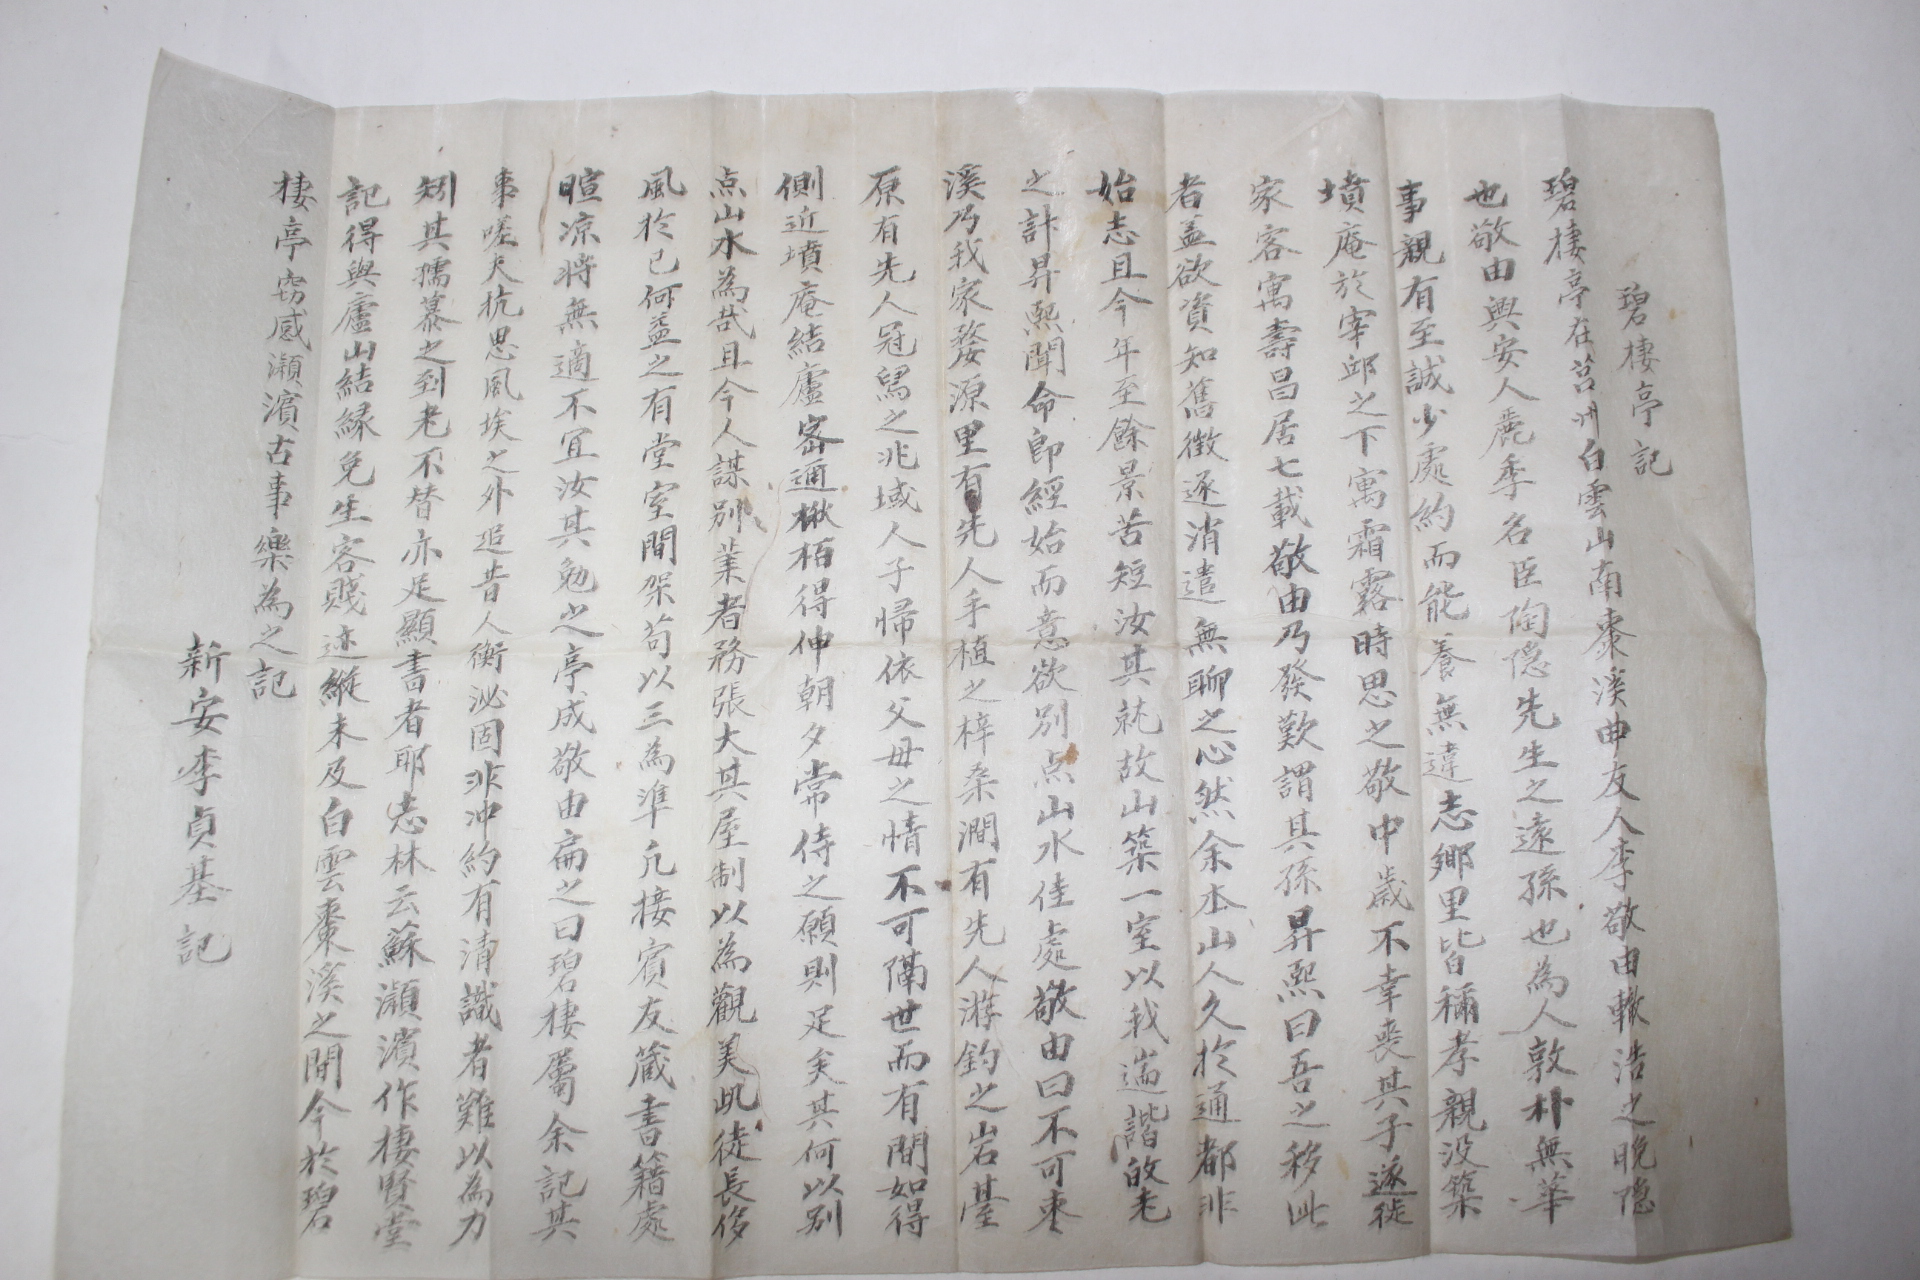 碧棲亭記
碧棲亭在莒州白雲山南棗溪曲友人李敬由轍浩之晩隠
也敬由興安人麗季名臣陶隠先生之遠孫也為人敦朴無華
事親有至誠少處約而能養無違志鄉里皆稱孝親没築
墳庵於宰邱之下寓霜露時思之敬中歲不幸喪其子遂徙
家客寓壽昌居七載敬由乃發歎謂其孫昇熙曰吾之移此
者盖欲資知舊徴逐消遣無聊之心然余本山人久於通都非
始志且今年至餘景苦短汝其就故山築一室以我遄諧故老
之計昇熙聞命即經始而意欲別点山水佳處敬由曰不可棗
溪乃我家婺源里有先人手植之梓桒澗有先人游釣之岩基
原有先人冠舃之兆域人子帰依父母之情不可隔世而有間如得
側近墳庵結廬密通楸栢得伸朝夕常侍之願則足矣其何以别
点山水為哉且今人謀别業者務張大其屋制以為觀美此徒長侈
風於已何益之有堂室間架苟以三為準凢接賓友蔵書籍處
暄凉将無適不宜汝其勉之亭成敬由扁之曰碧棲屬余記其
事嗟夫抗思風埃之外追昔人衡泌固非冲約有清識者難以為力
矧其孺慕之到老不替亦足顯書者耶志林云蘇瀕濱作棲賢堂
記得與廬山結緣免生客賤迹縱未及白雲棗溪之間今於碧
棲亭窃感瀕濱古事樂為之記
新安李貞基記